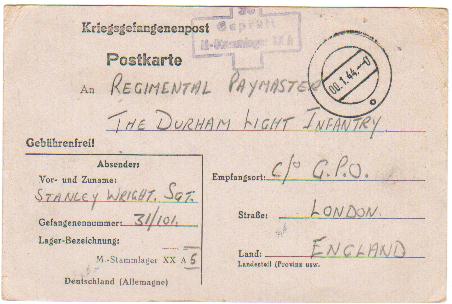 Kriegsgefangenenpost
Geprüft
M-Stammlager XX A
Postkarte
00.1.44.--0
An REGIMENTAL PAYMASTER
THE DURHAM LIGHT INFANTRY.
Gebührenfrei!
Absender:
Vor- und Zuname:
STANLEY WRIGHT. SGT.
Gefangenennummer: 31/101.
Lager-Bezeichnung:
M.-Stammlager XX A 5
Deutschland (Allemagne)
Empfangsort: C/o G.P.O.
Straße: LONDON.
Land: ENGLAND
Landesteil (Provinz usw.